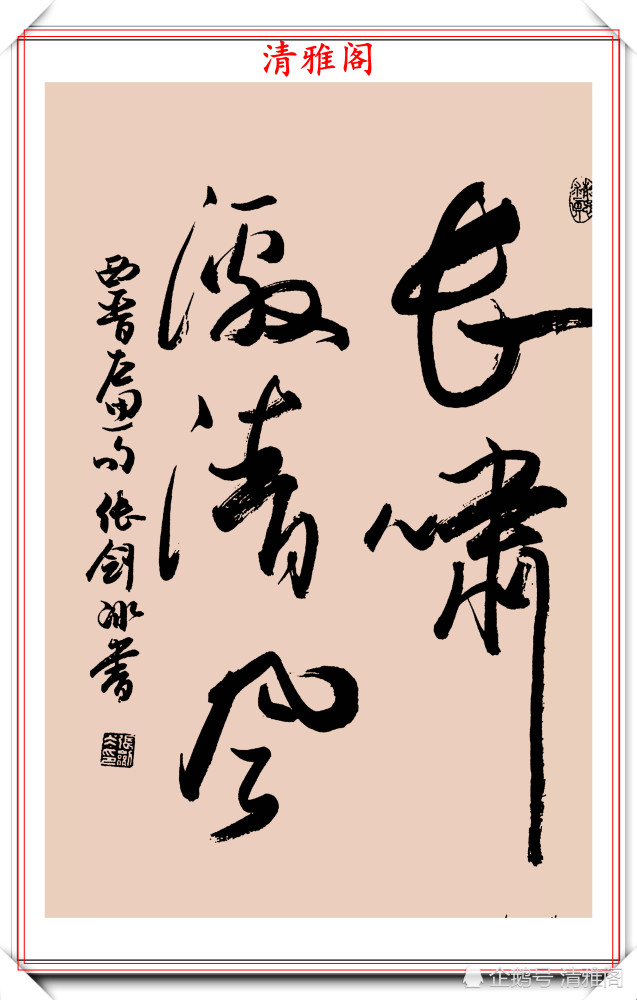 清雅阁
长啸
激清风
西晋左思句 张剑冰書
企鹅号 清雅阁